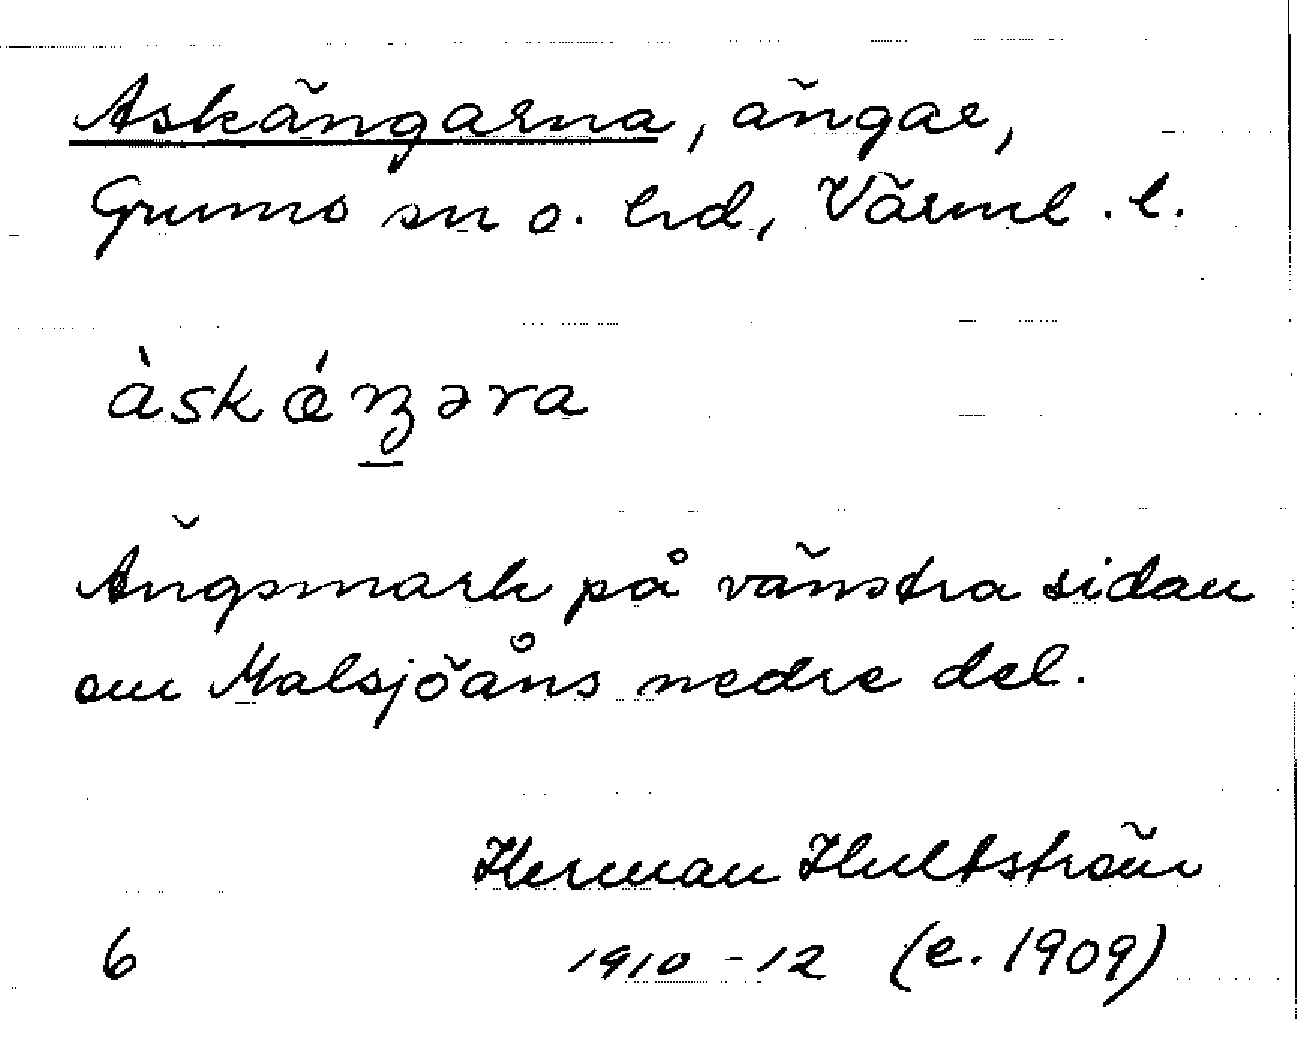 Askängarna, ängar,
Grums sn o. hd, Värml. l.
àskǽŋəra
Ängsmark på vänstra sidan
om Malsjöåns nedre del.
Herman Hultström
6 1910-12 (e. 1909)